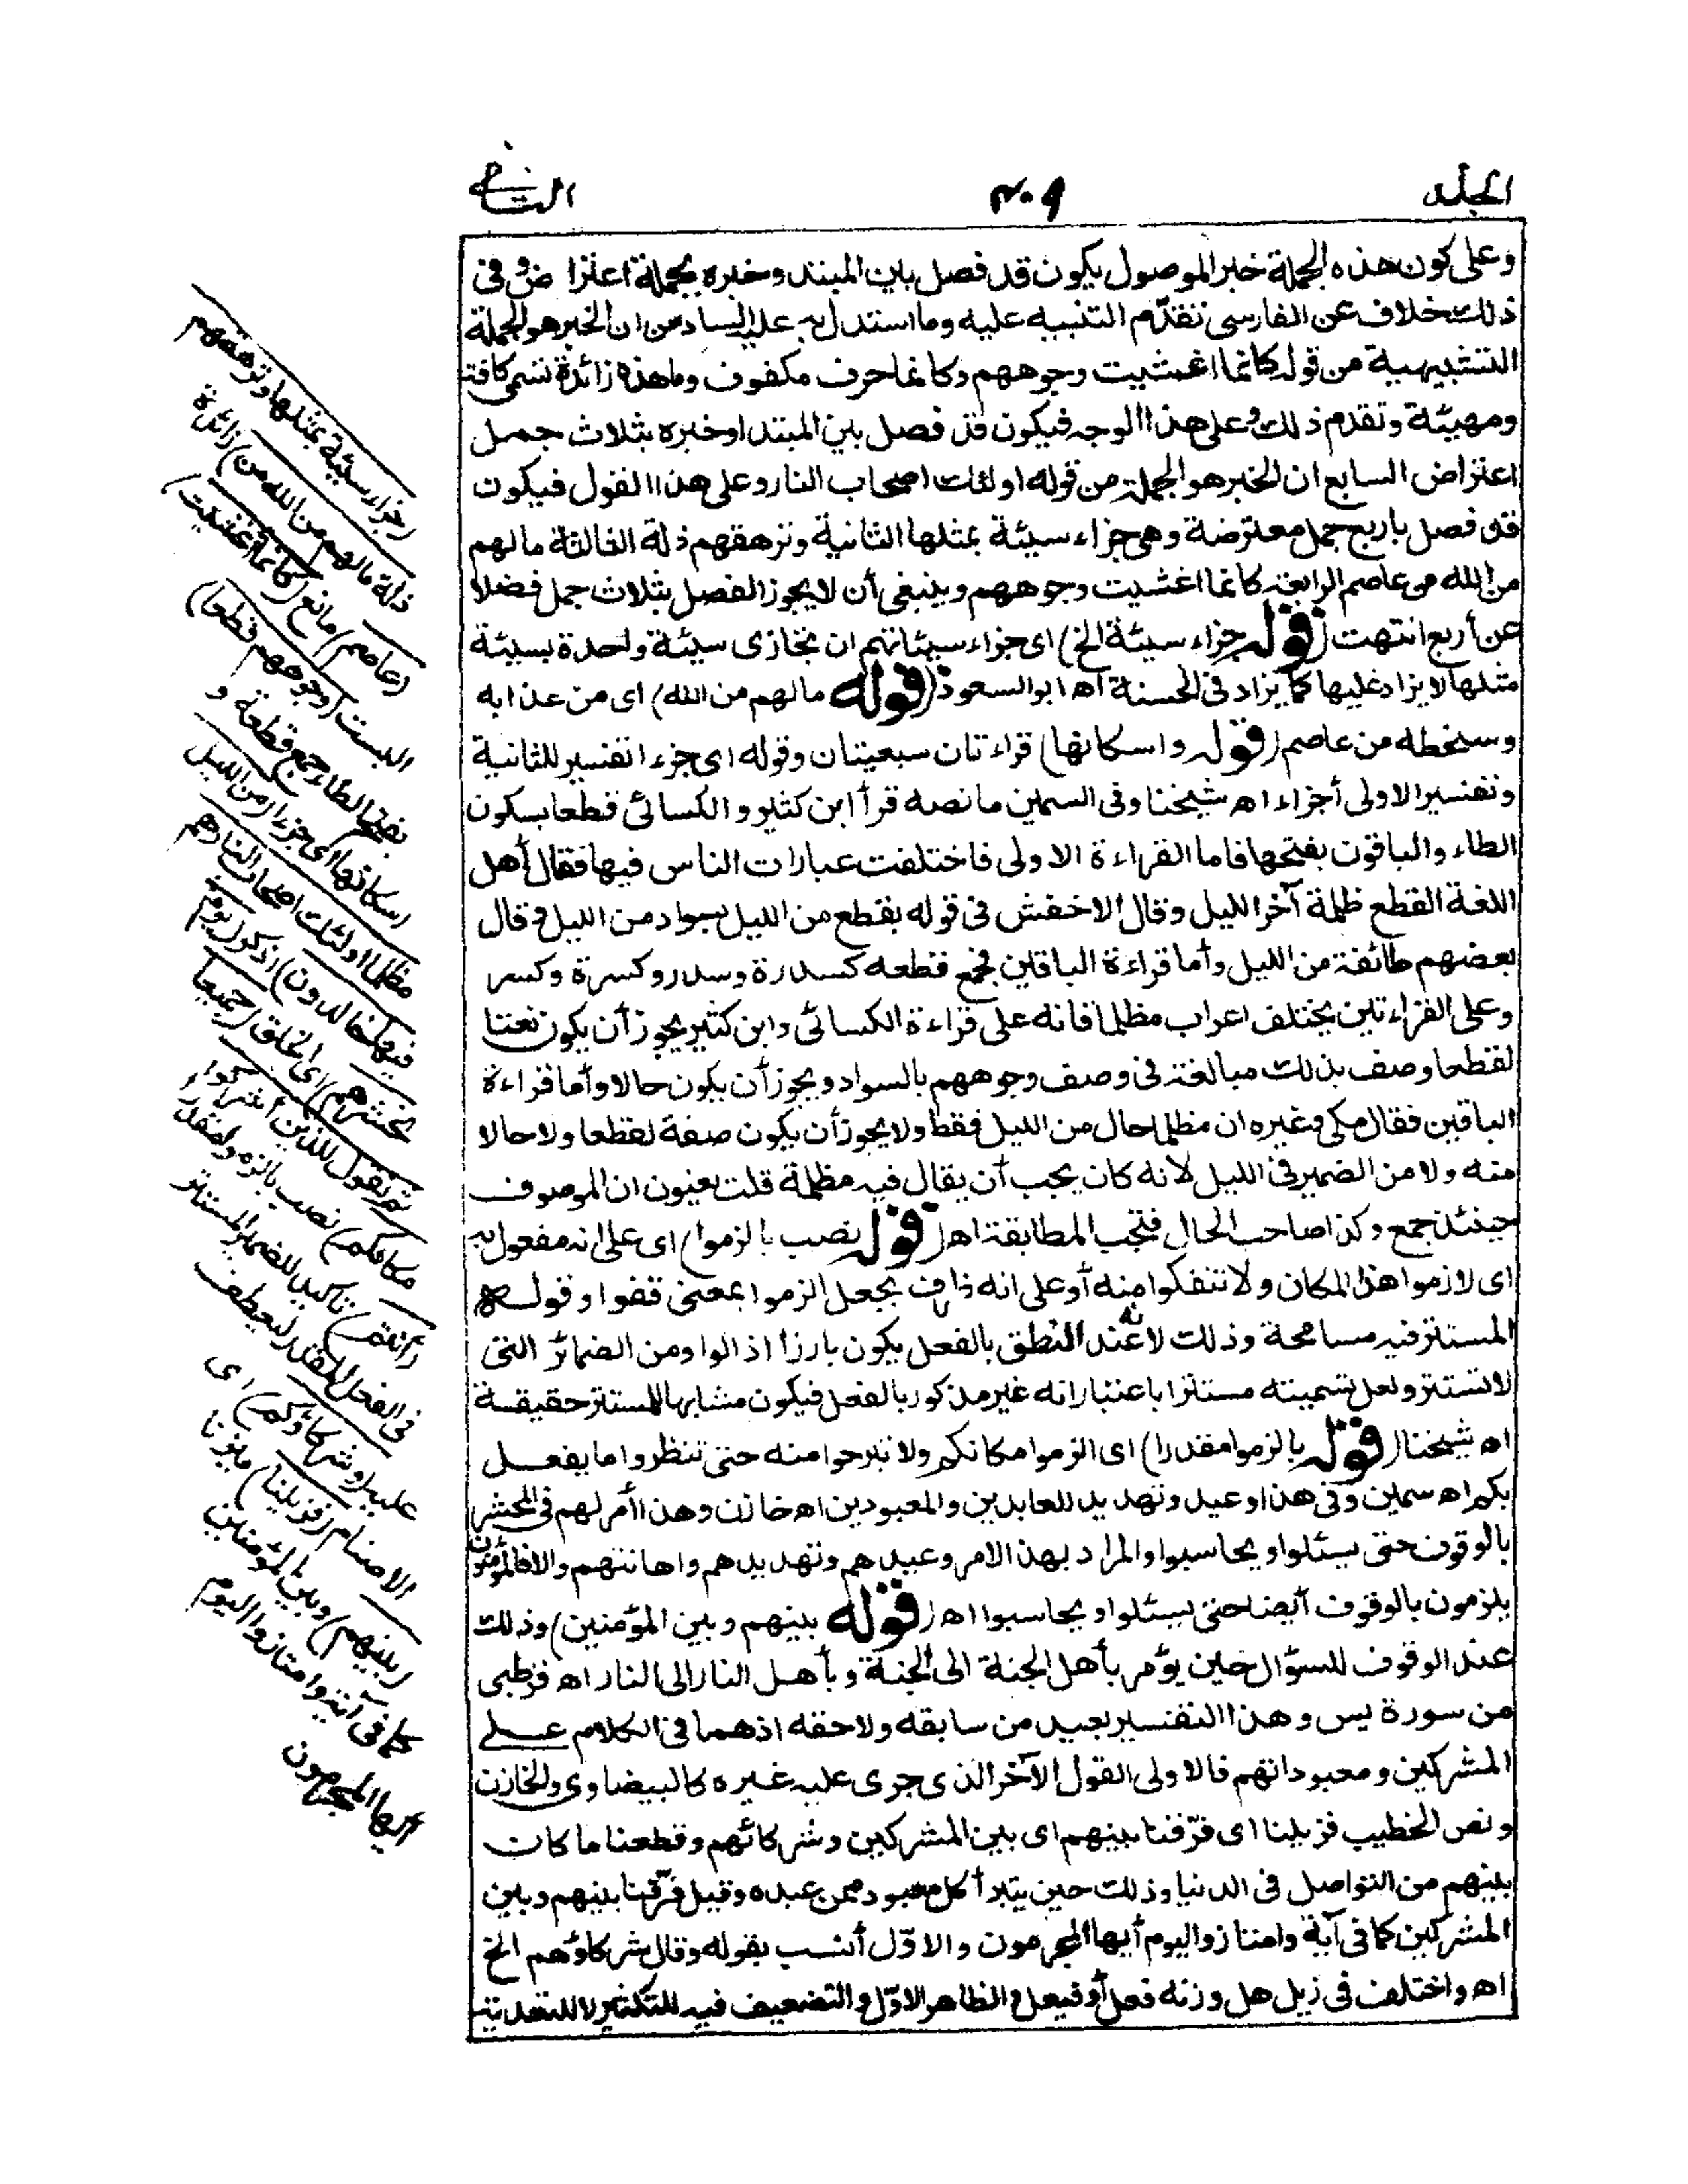 المجلد
٣٠٩
التاسع
وعلى كون هذه الجملة خبر الموصول يكون قد فصل بين المبتدا وخبره بجملة اعتراض وفى
ذلك خلاف عن الفارسى تقدّم التنبيه عليه وما استدل به عليه السادس ان الخبر هو الجملة
التشبيهية من قوله كانما اغشيت وجوههم وكانما حرف مكفوف وما هذه زائدة تسمى كافة
ومهيئة وتقدم ذلك وعلى هذا الوجه فيكون قد فصل بين المبتدا وخبره بثلاث جمل
اعتراض السابع ان الخبر هو الجملة من قوله اولئك اصحاب النار وعلى هذا القول فيكون
قد فصل باربع جمل معترضة وهى جزاء سيئة بمثلها الثانية وترهقهم ذلة الثالثة ما لهم
من الله من عاصم الرابعة كانما اغشيت وجوههم وينبغى أن لا يجوز الفصل بثلاث جمل فضلا
عن أربع انتهت (قوله جزاء سيئة الخ) اى جزاء سيئاتهم ان تجازى سيئة واحدة بسيئة
مثلها لا يزاد عليها كما يزاد فى الحسنة اه ابو السعود (قوله ما لهم من الله) اى من عذابه
وسخطه من عاصم (قوله واسكانها) قراءتان سبعيتان وقوله اى جزءا تفسير للثانية
وتفسير الاولى أجزاء اه شيخنا وفى السمين ما نصه قرأ ابن كثير والكسائى قطعا بسكون
الطاء والباقون بفتحها فاما القراءة الاولى فاختلفت عبارات الناس فيها فقال أهل
اللغة القطع ظلمة آخر الليل وقال الاخفش فى قوله بقطع من الليل بسواد من الليل وقال
بعضهم طائفة من الليل وأما قراءة الباقين فجمع قطعه كسدرة وسدر وكسرة وكسر
وعلى القراءتين يختلف اعراب مظلما فانه على قراءة الكسائى وابن كثير يجوز أن يكون نعتا
لقطعا وصف بذلك مبالغة فى وصف وجوههم بالسواد ويجوز أن يكون حالا وأما قراءة
الباقين فقال مكى وغيره ان مظلما حال من الليل فقط ولا يجوز أن يكون صفة لقطعا ولا حالا
منه ولا من الضمير فى الليل لانه كان يجب أن يقال فيه مظلمة قلت يعنون ان الموصوف
حينئذ جمع وكذا صاحب الحال فتجب المطابقة اه (قوله نصب بالزموا) اى على انه مفعول به
اى لازموا هذا المكان ولا تنفكوا منه أو على انه ظرف بجعل الزموا بمعنى قفوا وقوله
المستتر فيه مسامحة وذلك لانه عند النطق بالفعل يكون بارزا اذ الواو من الضمائر التى
لا تستتر ولعل تسميته مستترا باعتبار انه غير مذكور بالفعل فيكون مشابها للمستتر حقيقة
اه شيخنا (قوله بالزموا مقدرا) اى الزموا مكانكم ولا تبرحوا منه حتى تنظروا ما يفعل
بكم اه سمين وفى هذا وعيد وتهديد للعابدين والمعبودين اه خازن وهذا أمر لهم فى المحشر
بالوقوف حتى يسئلوا ويحاسبوا والمراد بهذا الامر وعيدهم وتهديدهم واهانتهم والا فالمؤمنون
يلزمون بالوقوف أيضا حتى يسئلوا ويحاسبوا اه (قوله بينهم وبين المؤمنين) وذلك
عند الوقوف للسؤال حين يؤمر بأهل الجنة الى الجنة وبأهل النار الى النار اه قرطبى
من سورة يس وهذا التفسير بعيد من سابقه ولاحقه اذ هما فى الكلام على
المشركين ومعبوداتهم فالاولى القول الآخر الذى جرى عليه غيره كالبيضاوى والخازن
ونص الخطيب فزيلنا اى فرّقنا بينهم اى بين المشركين وشركائهم وقطعنا ما كان
بينهم من التواصل فى الدنيا وذلك حين يتبرأ كل معبود ممن عبده وقيل فرّقنا بينهم وبين
المشركين كما فى آية وامتازوا اليوم أيها المجرمون والاوّل أنسب بقوله وقال شركاؤهم الخ
اه واختلف فى زيل هل وزنه فعل أو فيعل والظاهر الاوّل والتضعيف فيه للتكثير لا للتعدية
(جزاء سيئة بمثلها وترهقهم
ذلة ما لهم من الله من) زائدة
(عاصم) مانع (كانما اغشيت)
البست (وجوههم قطعا)
بفتح الطاء جمع قطعة و
اسكانها اى جزءا (من الليل
مظلما اولئك اصحاب النار هم
فيها خالدون) اذكر (يوم
نحشرهم) اى الخلق (جميعا
ثم نقول للذين أشركوا
مكانكم) نصب بالزموا مقدرا
(أنتم) تاكيد للضمير المستتر
فى الفعل المقدر ليعطف
عليه (وشركاؤكم) اى
الاصنام (فزيلنا) ميزنا
(بينهم) وبين المؤمنين
كما فى آية وامتازوا اليوم
أيها المجرمون